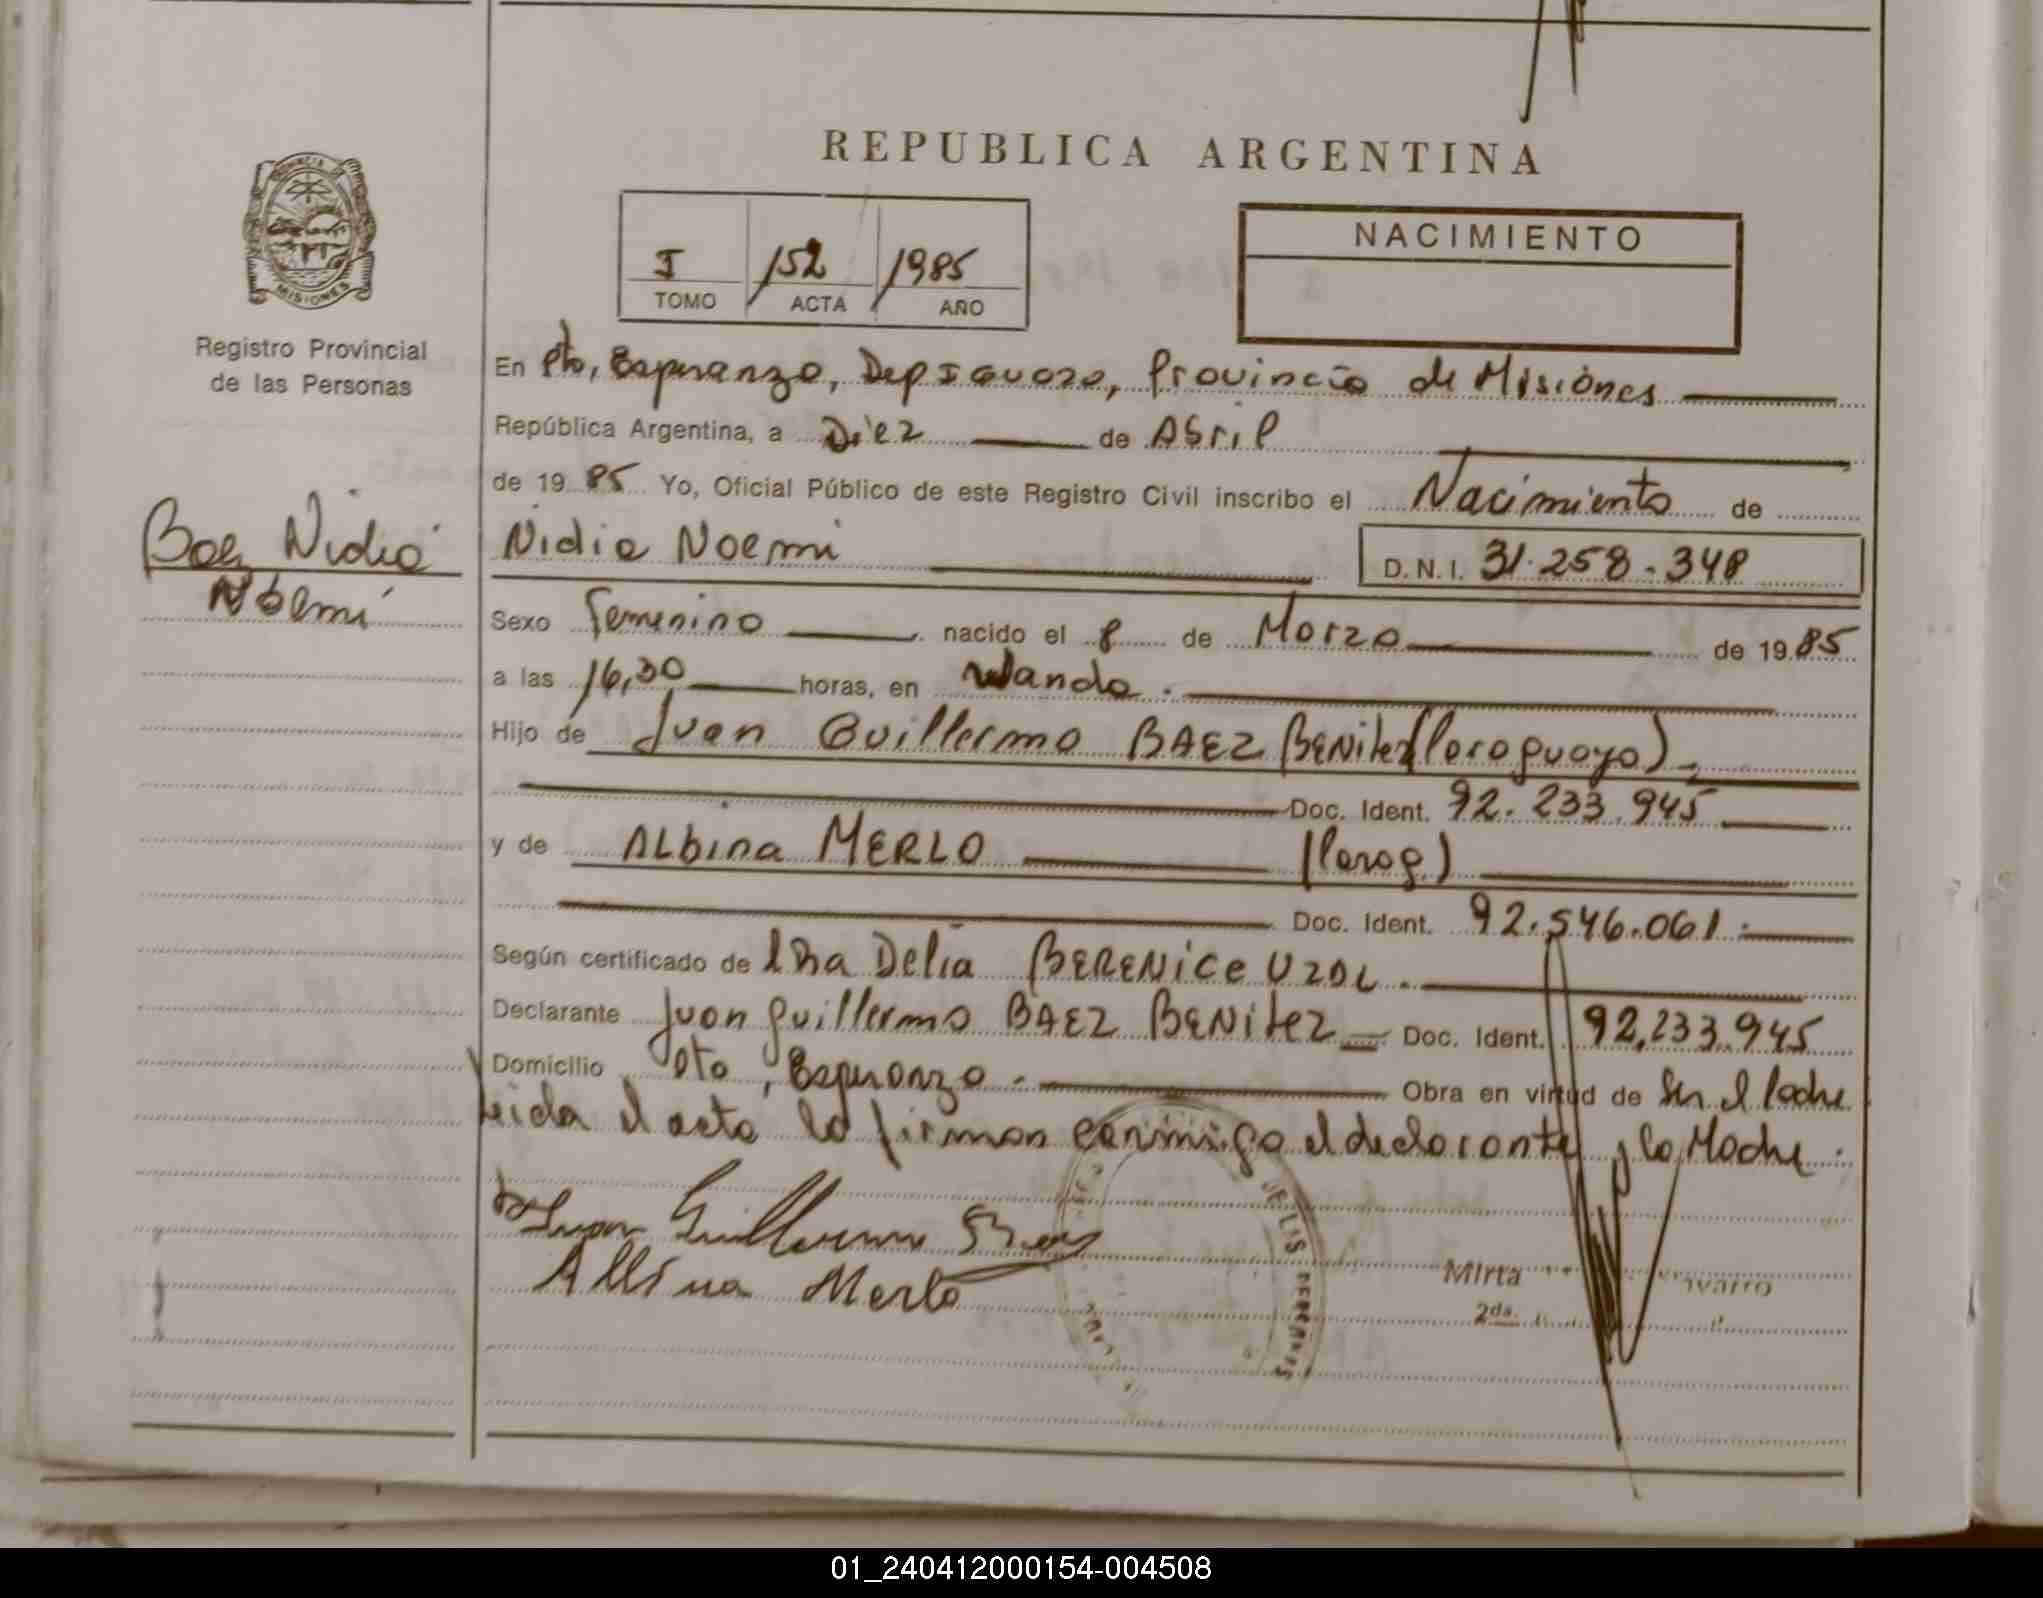 REPUBLICA ARGENTINA
PROVINCIA
MISIONES
Registro Provincial
de las Personas
I /152 /1985
TOMO ACTA AÑO
NACIMIENTO
En Pto, Esperanza, Dep Iguazo, Provincia de Misiones
República Argentina, a Diez de Abril
de 1985 Yo, Oficial Público de este Registro Civil inscribo el Nacimiento de
Baez Nidia
Noemí
Nidia Noemi D.N.I. 31.258.348
Sexo Femenino nacido el 8 de Marzo de 1985
a las 16,30 horas, en Wanda.
Hijo de Juan Guillermo BAEZ BENitez (Paraguayo)
Doc. Ident. 92.233.945
y de ALbina MERLO (Parag.)
Doc. Ident. 92.546.061.
Según certificado de Delia BERENiCe UZOL.
Declarante Juan Guillermo BAEZ BENitez Doc. Ident. 92,233.945
Domicilio Pto, Esperanza. Obra en virtud de Ser el Padre
Leida el acta la firman conmigo el declarante y la Madre.
Juan Guillermo Baez
Albina Merlo
Mirta
2da.
DE LAS PERSONAS
01_240412000154-004508